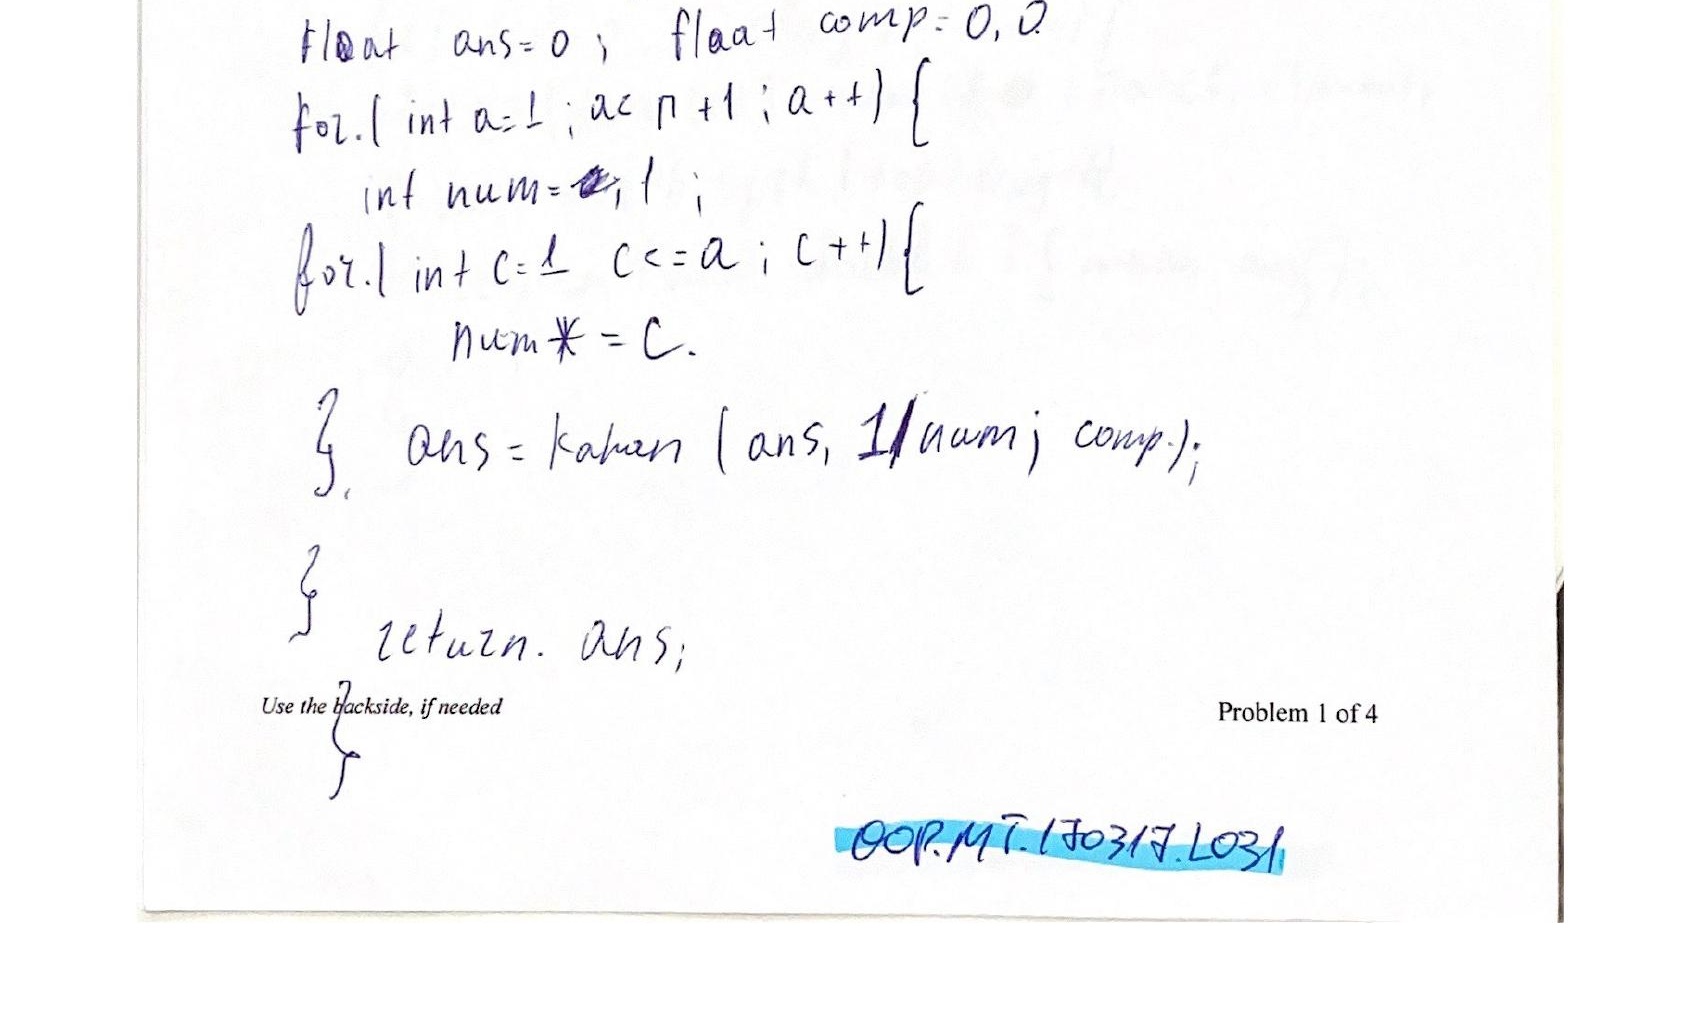 float ans=0; float comp=0,0
for.( int a=1; a< n+1; a++) {
int num= 1;
for.( int c=1 c<=a; c++) {
num*=c.
} ans = kahan ( ans, 1/num; comp.);
}
return. ans;
Use the backside, if needed
Problem 1 of 4
}
OOP.MT.170317.L031